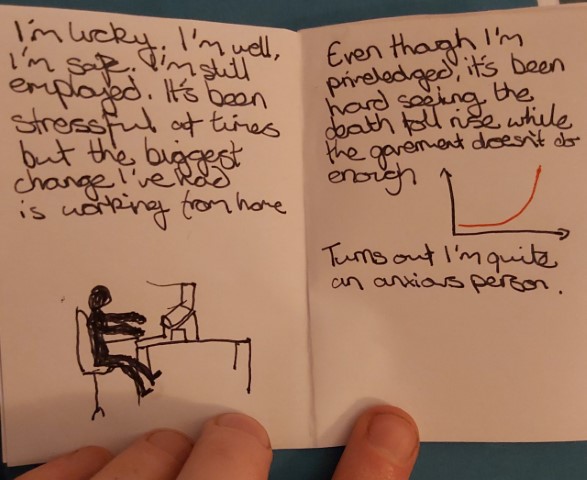 I'm lucky. I'm well,
I'm safe. I'm still
employed. It's been
stressful at times
but the biggest
change I've had
is working from home
Even though I'm
priveledged, it's been
hard seeing the
death toll rise while
the goverment doesn't do
enough
Turns out I'm quite
an anxious person.